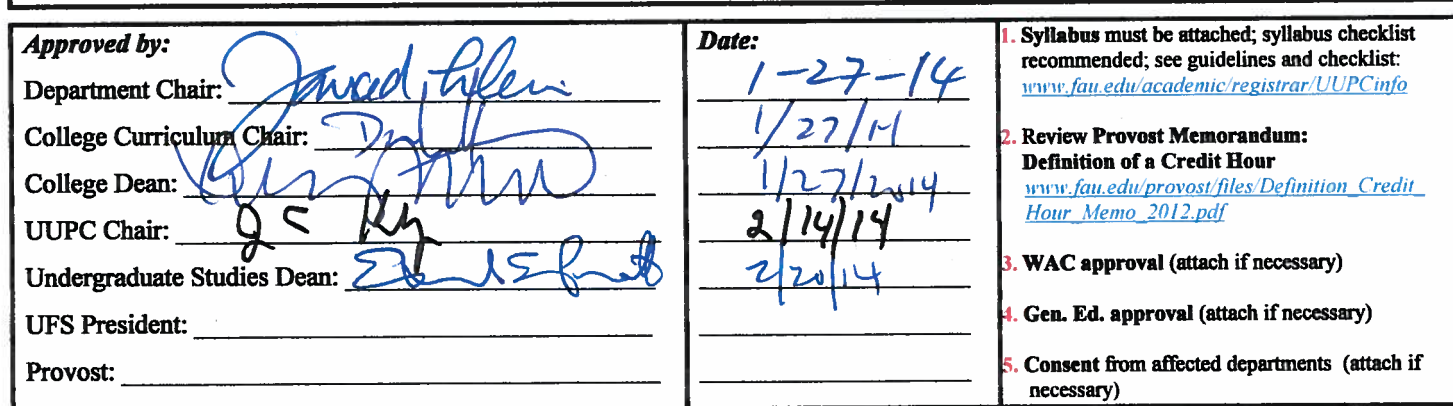 Approved by:
Department Chair:
College Curriculum Chair:
College Dean:
UUPC Chair:
Undergraduate Studies Dean:
UFS President:
Provost:
Date:
1-27-14
1/27/14
1/27/2014
2/14/14
2/20/14
1. Syllabus must be attached; syllabus checklist
recommended; see guidelines and checklist:
www.fau.edu/academic/registrar/UUPCinfo
2. Review Provost Memorandum:
Definition of a Credit Hour
www.fau.edu/provost/files/Definition_Credit_
Hour_Memo_2012.pdf
3. WAC approval (attach if necessary)
4. Gen. Ed. approval (attach if necessary)
5. Consent from affected departments (attach if
necessary)